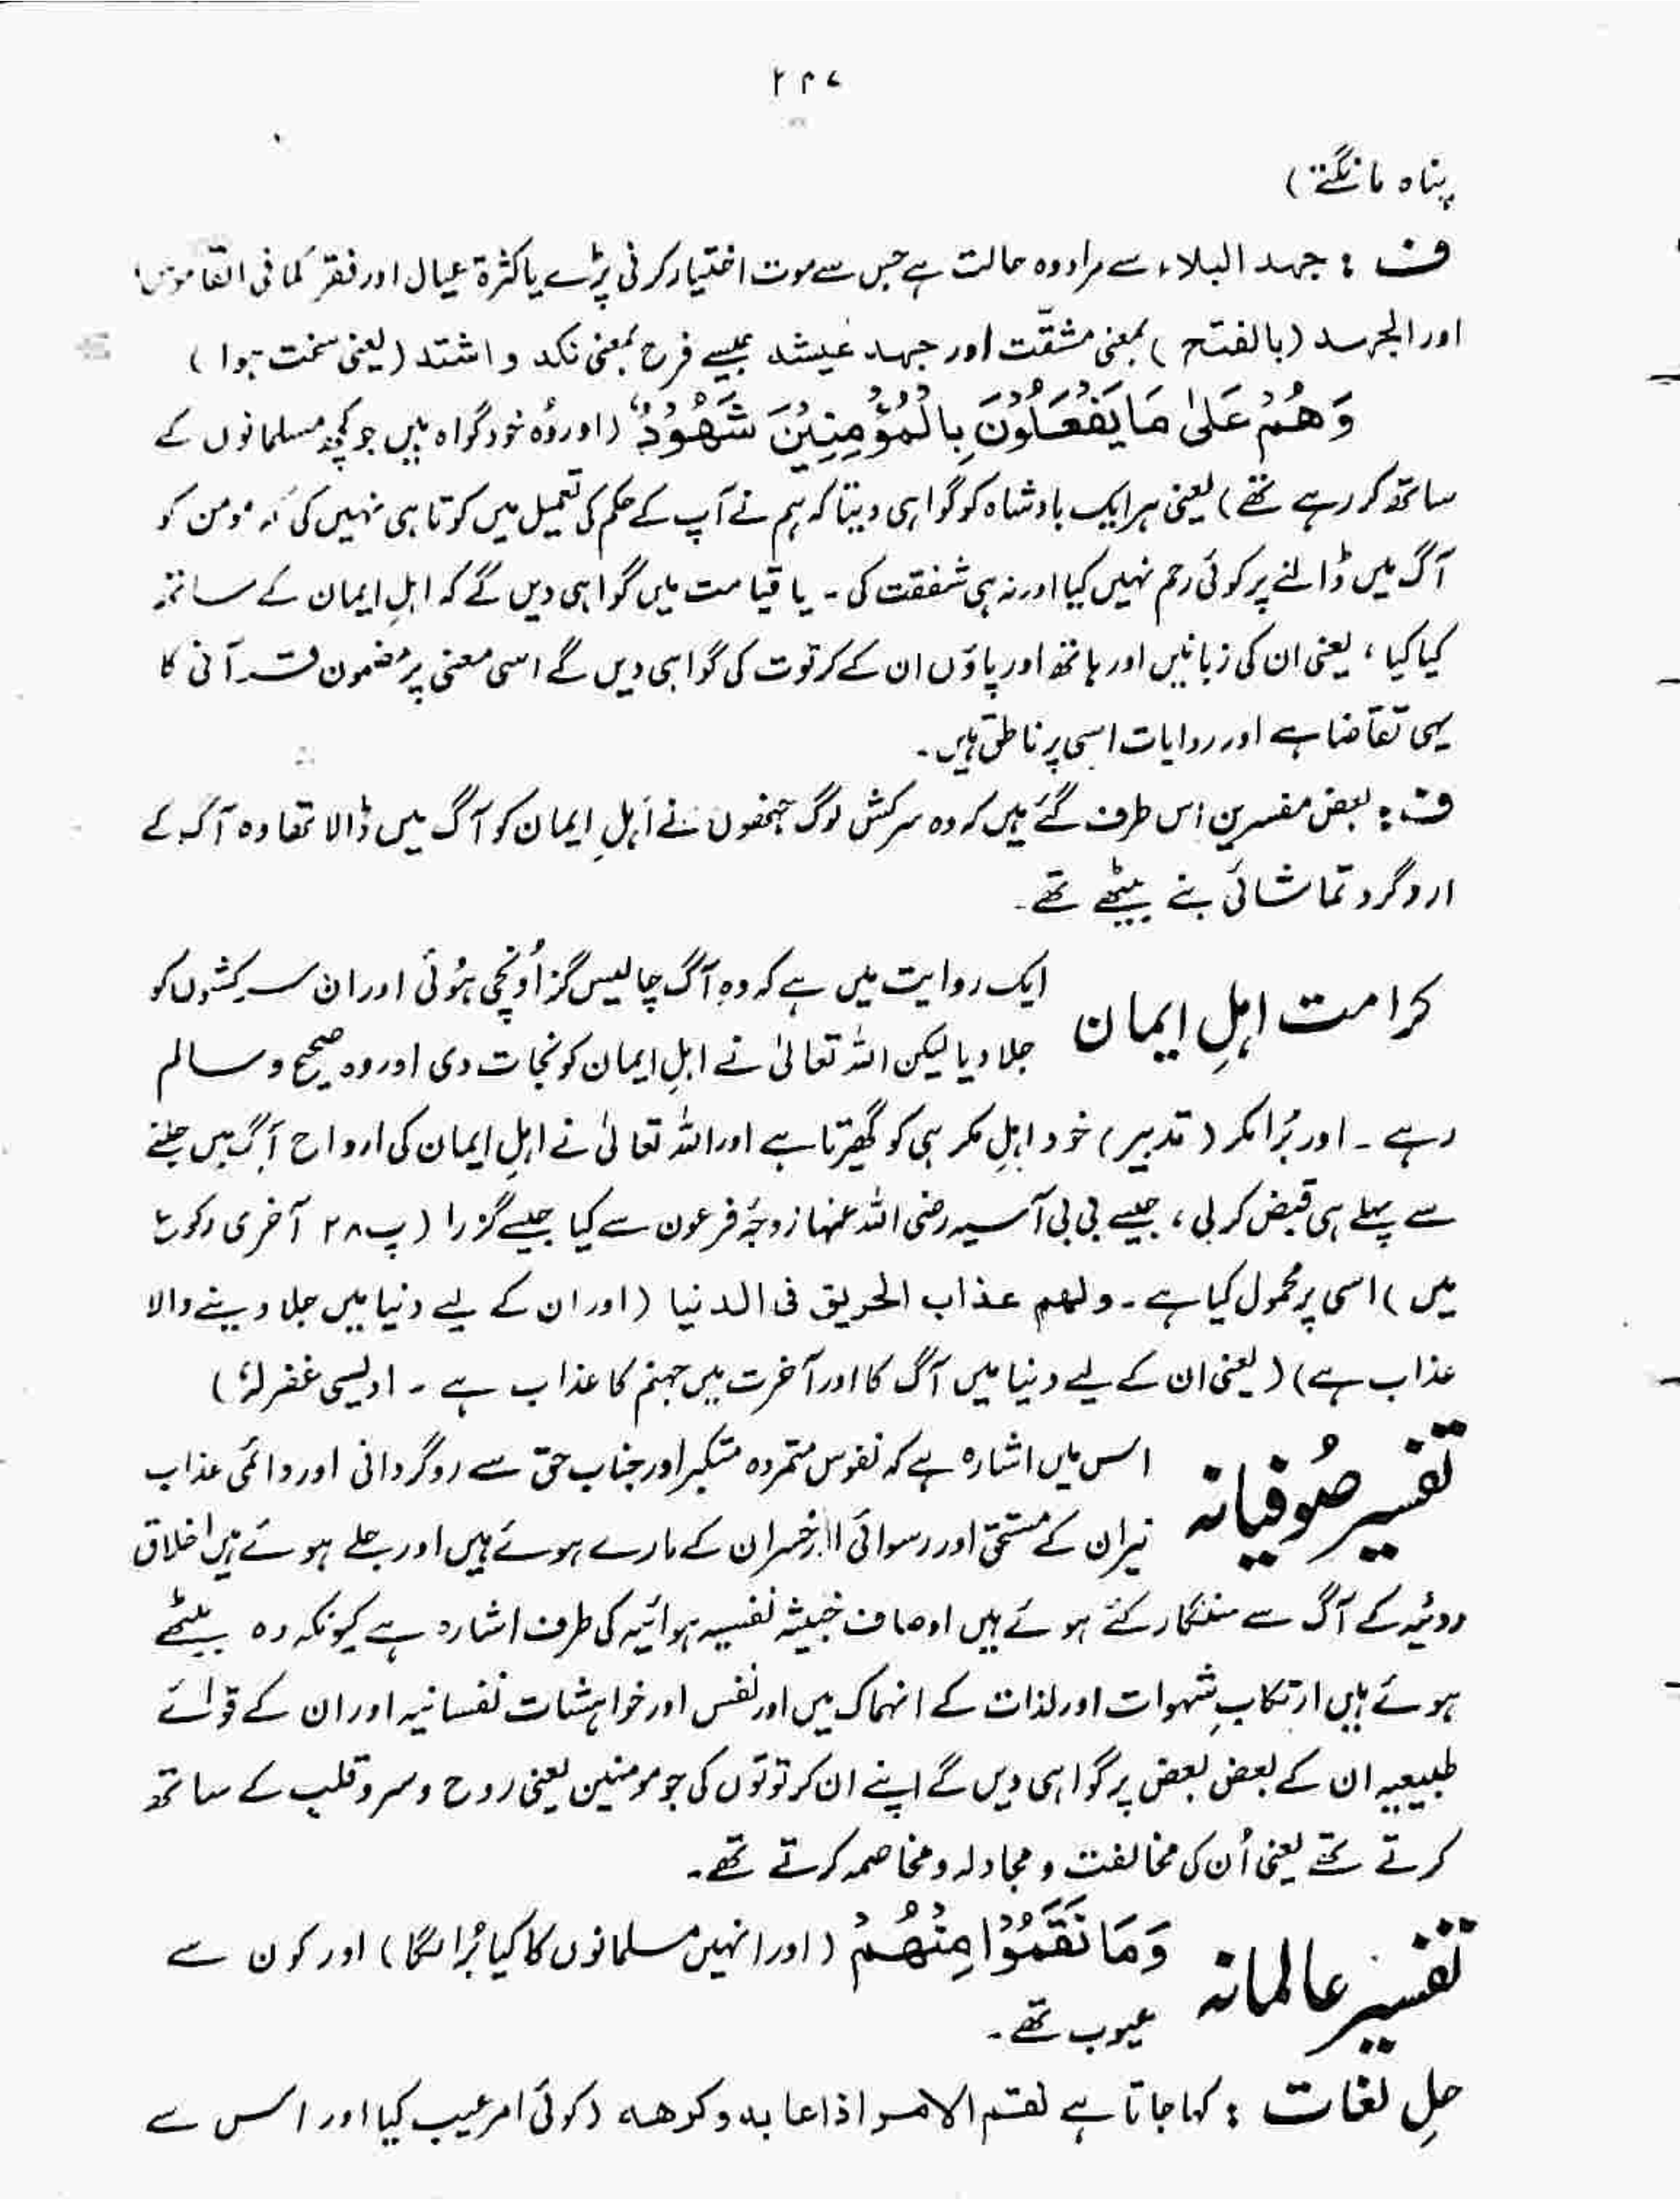 ۲۴۷
پناہ مانگتے)
ف : جہد البلاء سے مراد وہ حالت ہے جس سے موت اختیار کرنی پڑے یا کثرۃ عیال اور فقر کما فی القاموس
اور الجہد (بالفتح) بمعنی مشقّت اور جہد عیشہ جیسے فرح بمعنی نکد و اشتد (یعنی سخت ہوا)
وَهُمْ عَلىٰ مَا يَفْعَلُوْنَ بِالْمُؤْمِنِيْنَ شُهُوْدٌ (اور وُہ خود گواہ ہیں جو کچھ مسلمانوں کے
ساتھ کر رہے تھے) یعنی ہر ایک بادشاہ کو گواہی دیتا کہ ہم نے آپ کے حکم کی تعمیل میں کوتاہی نہیں کی کہ مومن کو
آگ میں ڈالنے پر کوئی رحم نہیں کیا اور نہ ہی شفقت کی ۔ یا قیامت میں گواہی دیں گے کہ اہلِ ایمان کے ساتھ
کیا کیا ، یعنی ان کی زبانیں اور ہاتھ اور پاؤں ان کے کرتوت کی گواہی دیں گے اسی معنی پر مضمون قرآنی کا
یہی تقاضا ہے اور روایات اسی پر ناطق ہیں ۔
ف : بعض مفسرین اس طرف گئے ہیں کہ وہ سرکش لوگ جنھوں نے اہلِ ایمان کو آگ میں ڈالا تھا وہ آگ کے
اردگرد تماشائی بنے بیٹھے تھے ۔
کرامت اہلِ ایمان ایک روایت میں ہے کہ وہ آگ چالیس گز اُونچی ہُوئی اور ان سرکشوں کو
جلا دیا لیکن اللہ تعالیٰ نے اہلِ ایمان کو نجات دی اور وہ صحیح و سالم
رہے ۔ اور بُرا مکر (تدبیر) خود اہلِ مکر ہی کو گھیرتا ہے اور اللہ تعالیٰ نے اہلِ ایمان کی ارواح آگ میں جلنے
سے پہلے ہی قبض کر لی ، جیسے بی بی آسیہ رضی اللہ عنہا زوجۂ فرعون سے کیا جیسے گزرا (پ ۲۸ آخری رکوع
میں) اسی پر محمول کیا ہے ۔ ولھم عذاب الحریق فی الدنیا (اور ان کے لیے دنیا میں جلا دینے والا
عذاب ہے) (یعنی ان کے لیے دنیا میں آگ کا اور آخرت میں جہنم کا عذاب ہے ۔ اویسی غفرلہٗ)
تفسیر صُوفیانہ اس میں اشارہ ہے کہ نفوس متمردہ متکبر اور جناب حق سے روگردانی اور دائمی عذاب
نیران کے مستحق اور رسوائی اور خسران کے مارے ہوئے ہیں اور جلے ہوئے ہیں اخلاق
ردئیہ کے آگ سے سنگسار کئے ہوئے ہیں اوصاف خبیثہ نفسیہ ہوائیہ کی طرف اشارہ ہے کیونکہ وہ بیٹھے
ہوئے ہیں ارتکابِ شہوات اور لذات کے انہماک میں اور نفس اور خواہشات نفسانیہ اور ان کے قوائے
طبیعیہ ان کے بعض بعض پر گواہی دیں گے اپنے ان کرتوتوں کی جو مومنین یعنی روح و سر و قلب کے ساتھ
کرتے تھے یعنی اُن کی مخالفت و مجادلہ و مخاصمہ کرتے تھے ۔
تفسیر عالمانہ وَمَا نَقَمُوْا مِنْهُمْ (اور انہیں مسلمانوں کا کیا بُرا لگا) اور کون سے
عیوب تھے ۔
حلِ لغات : کہا جاتا ہے نقم الامر اذا عابہ و کرھہ (کوئی امر عیب کیا اور اس سے